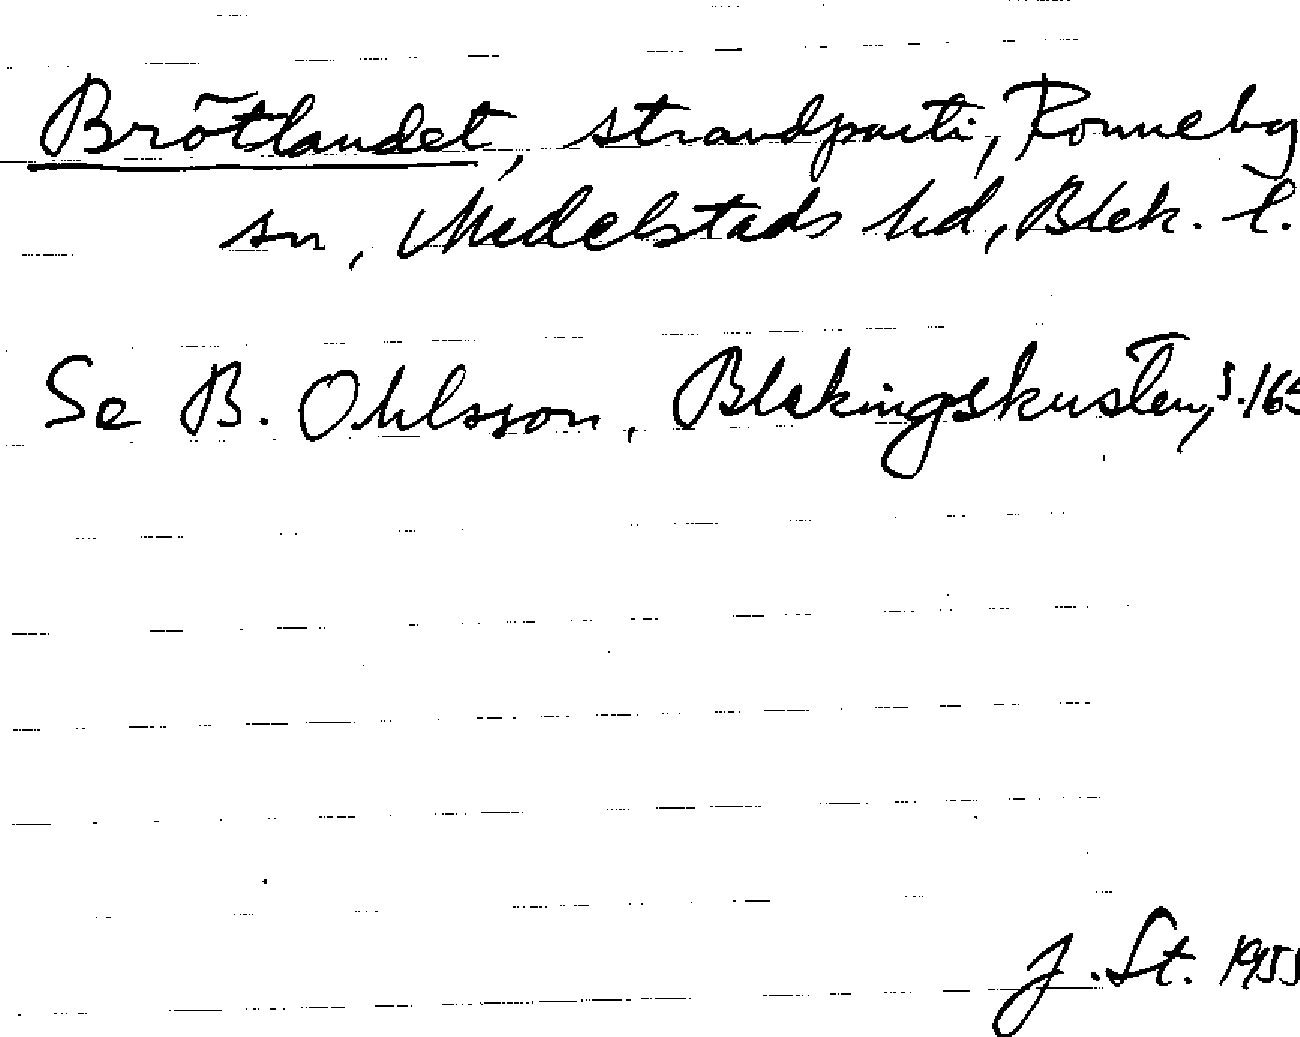 Brötlandet, strandparti, Ronneby
sn, Medelstads hd, Blek. l.
Se B. Ohlsson, Blekingskusten, s. 165
J. St. 1955